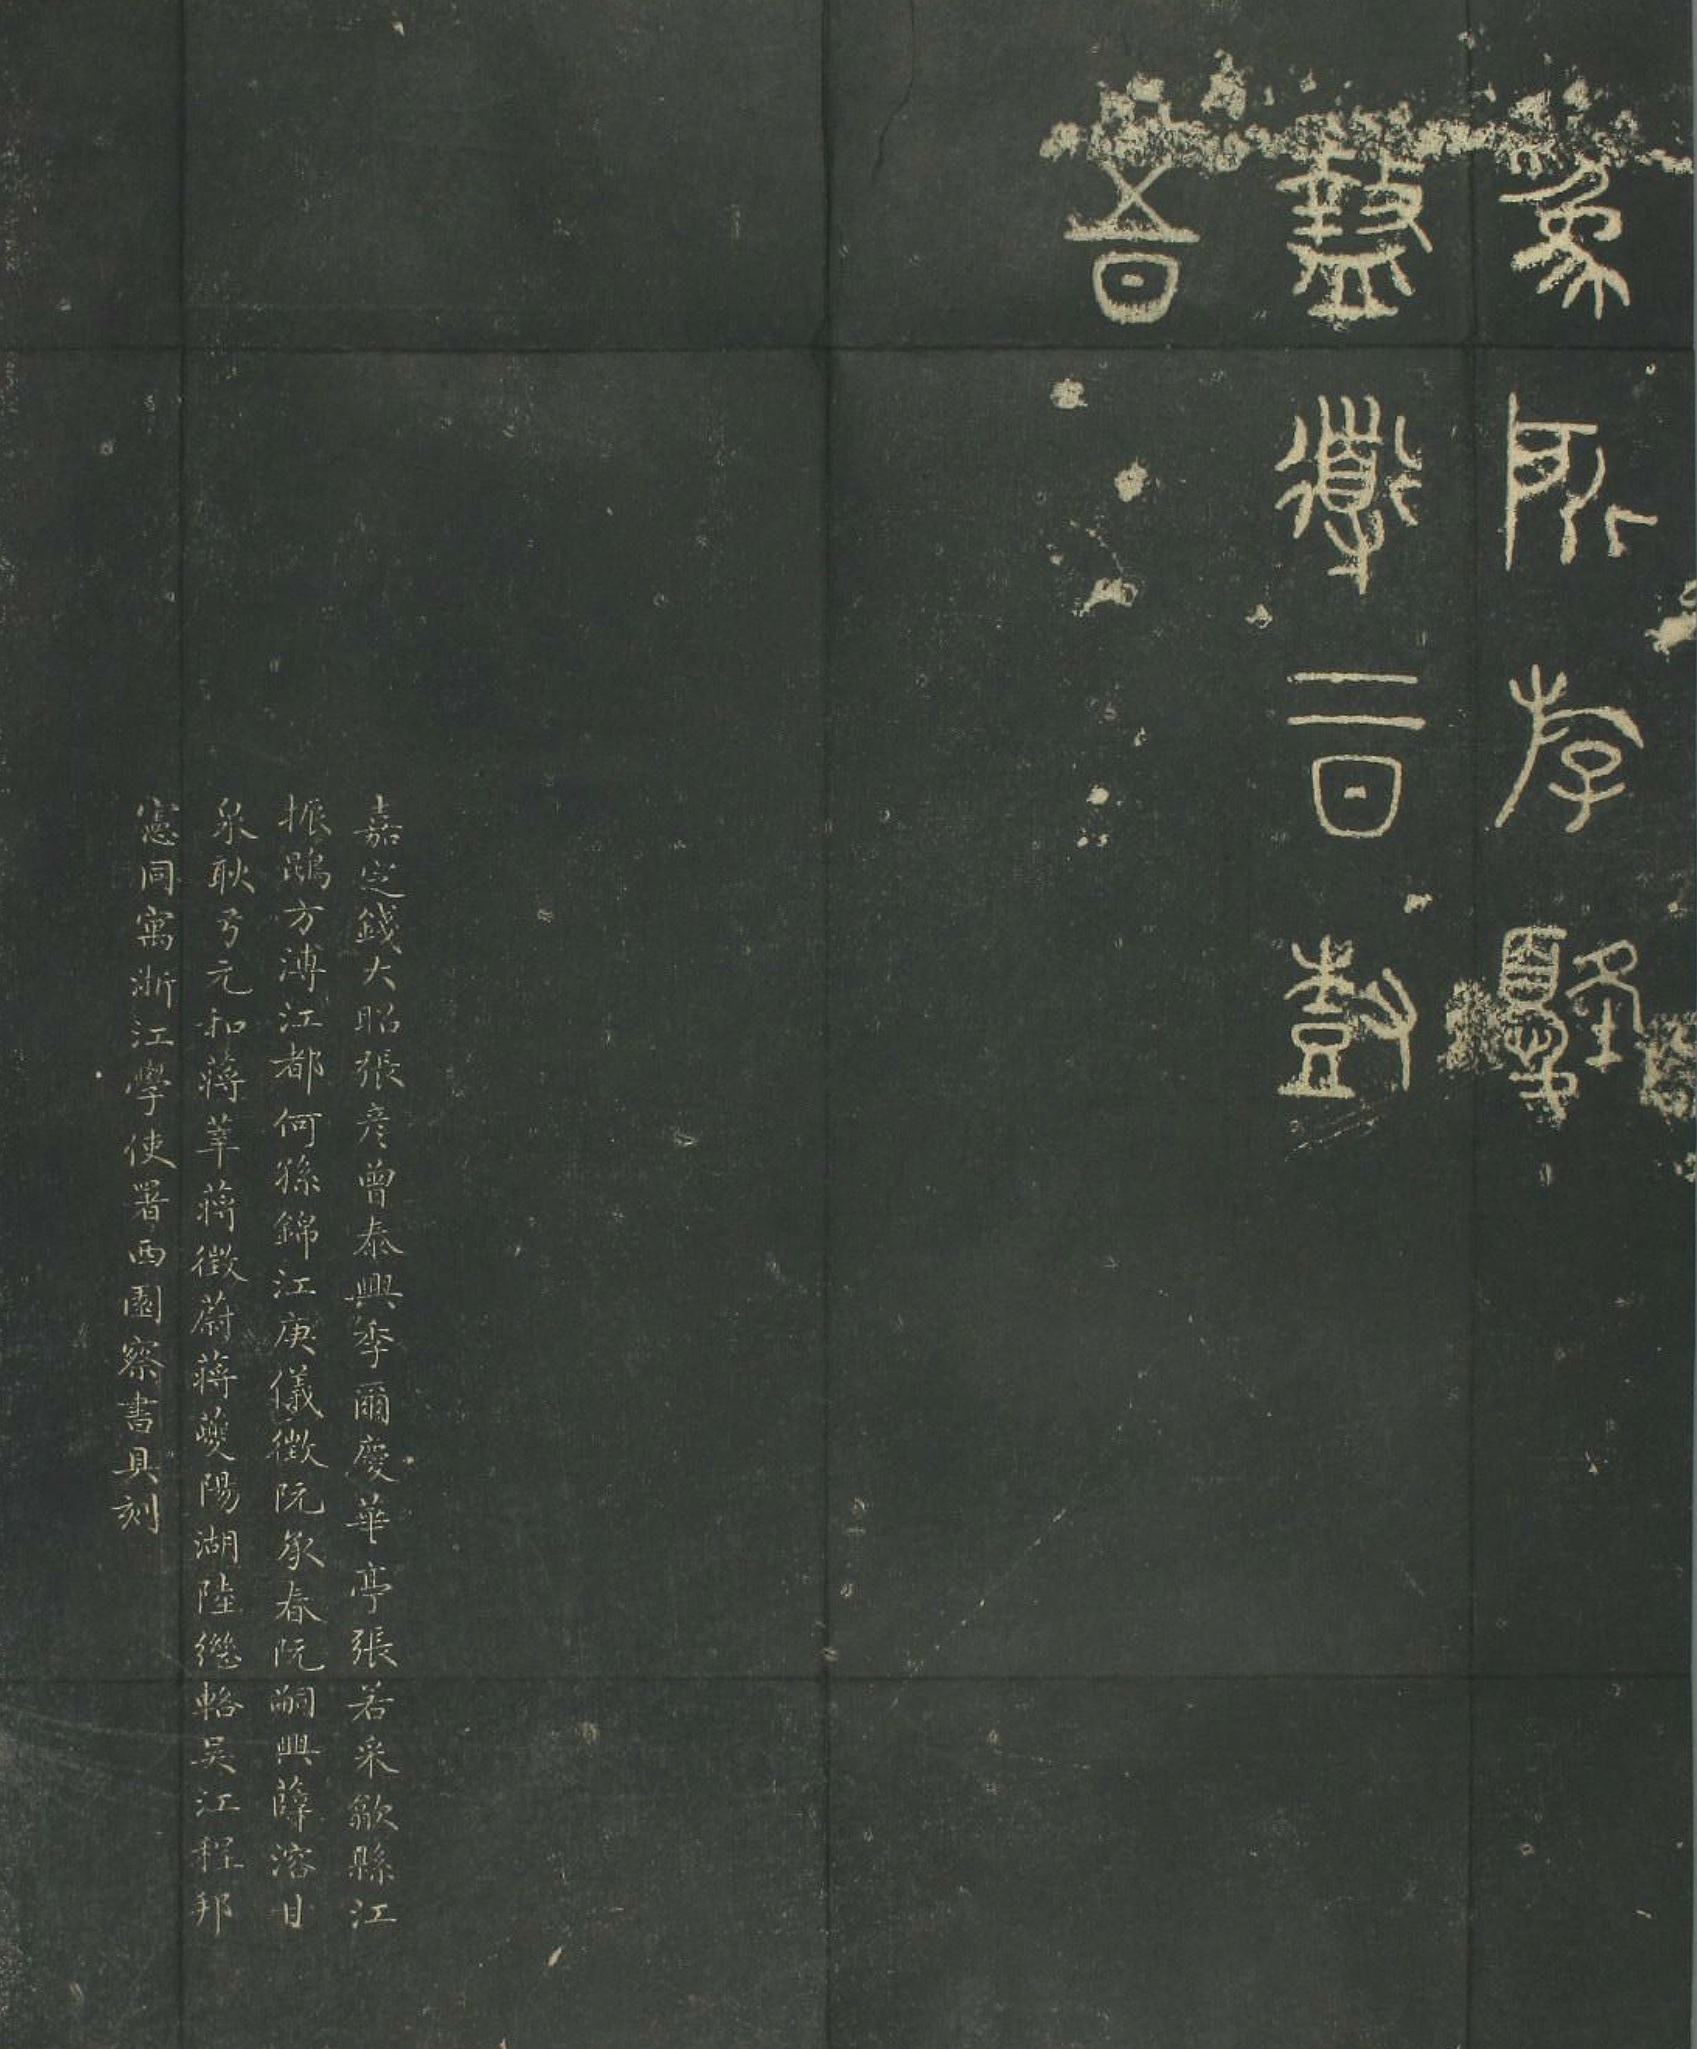 爲所斿
盩導二日尌
五日
嘉定錢大昭張彥曾泰興季爾慶華亭張若采歙縣江
振方溥江都何孫錦江庚儀徵阮承春阮嗣興薛溶甘
泉耿元和蔣莘蔣徵蔚蔣夔陽湖陸繼輅吳江程邦
憲同寓浙江學使署西園察書具刻